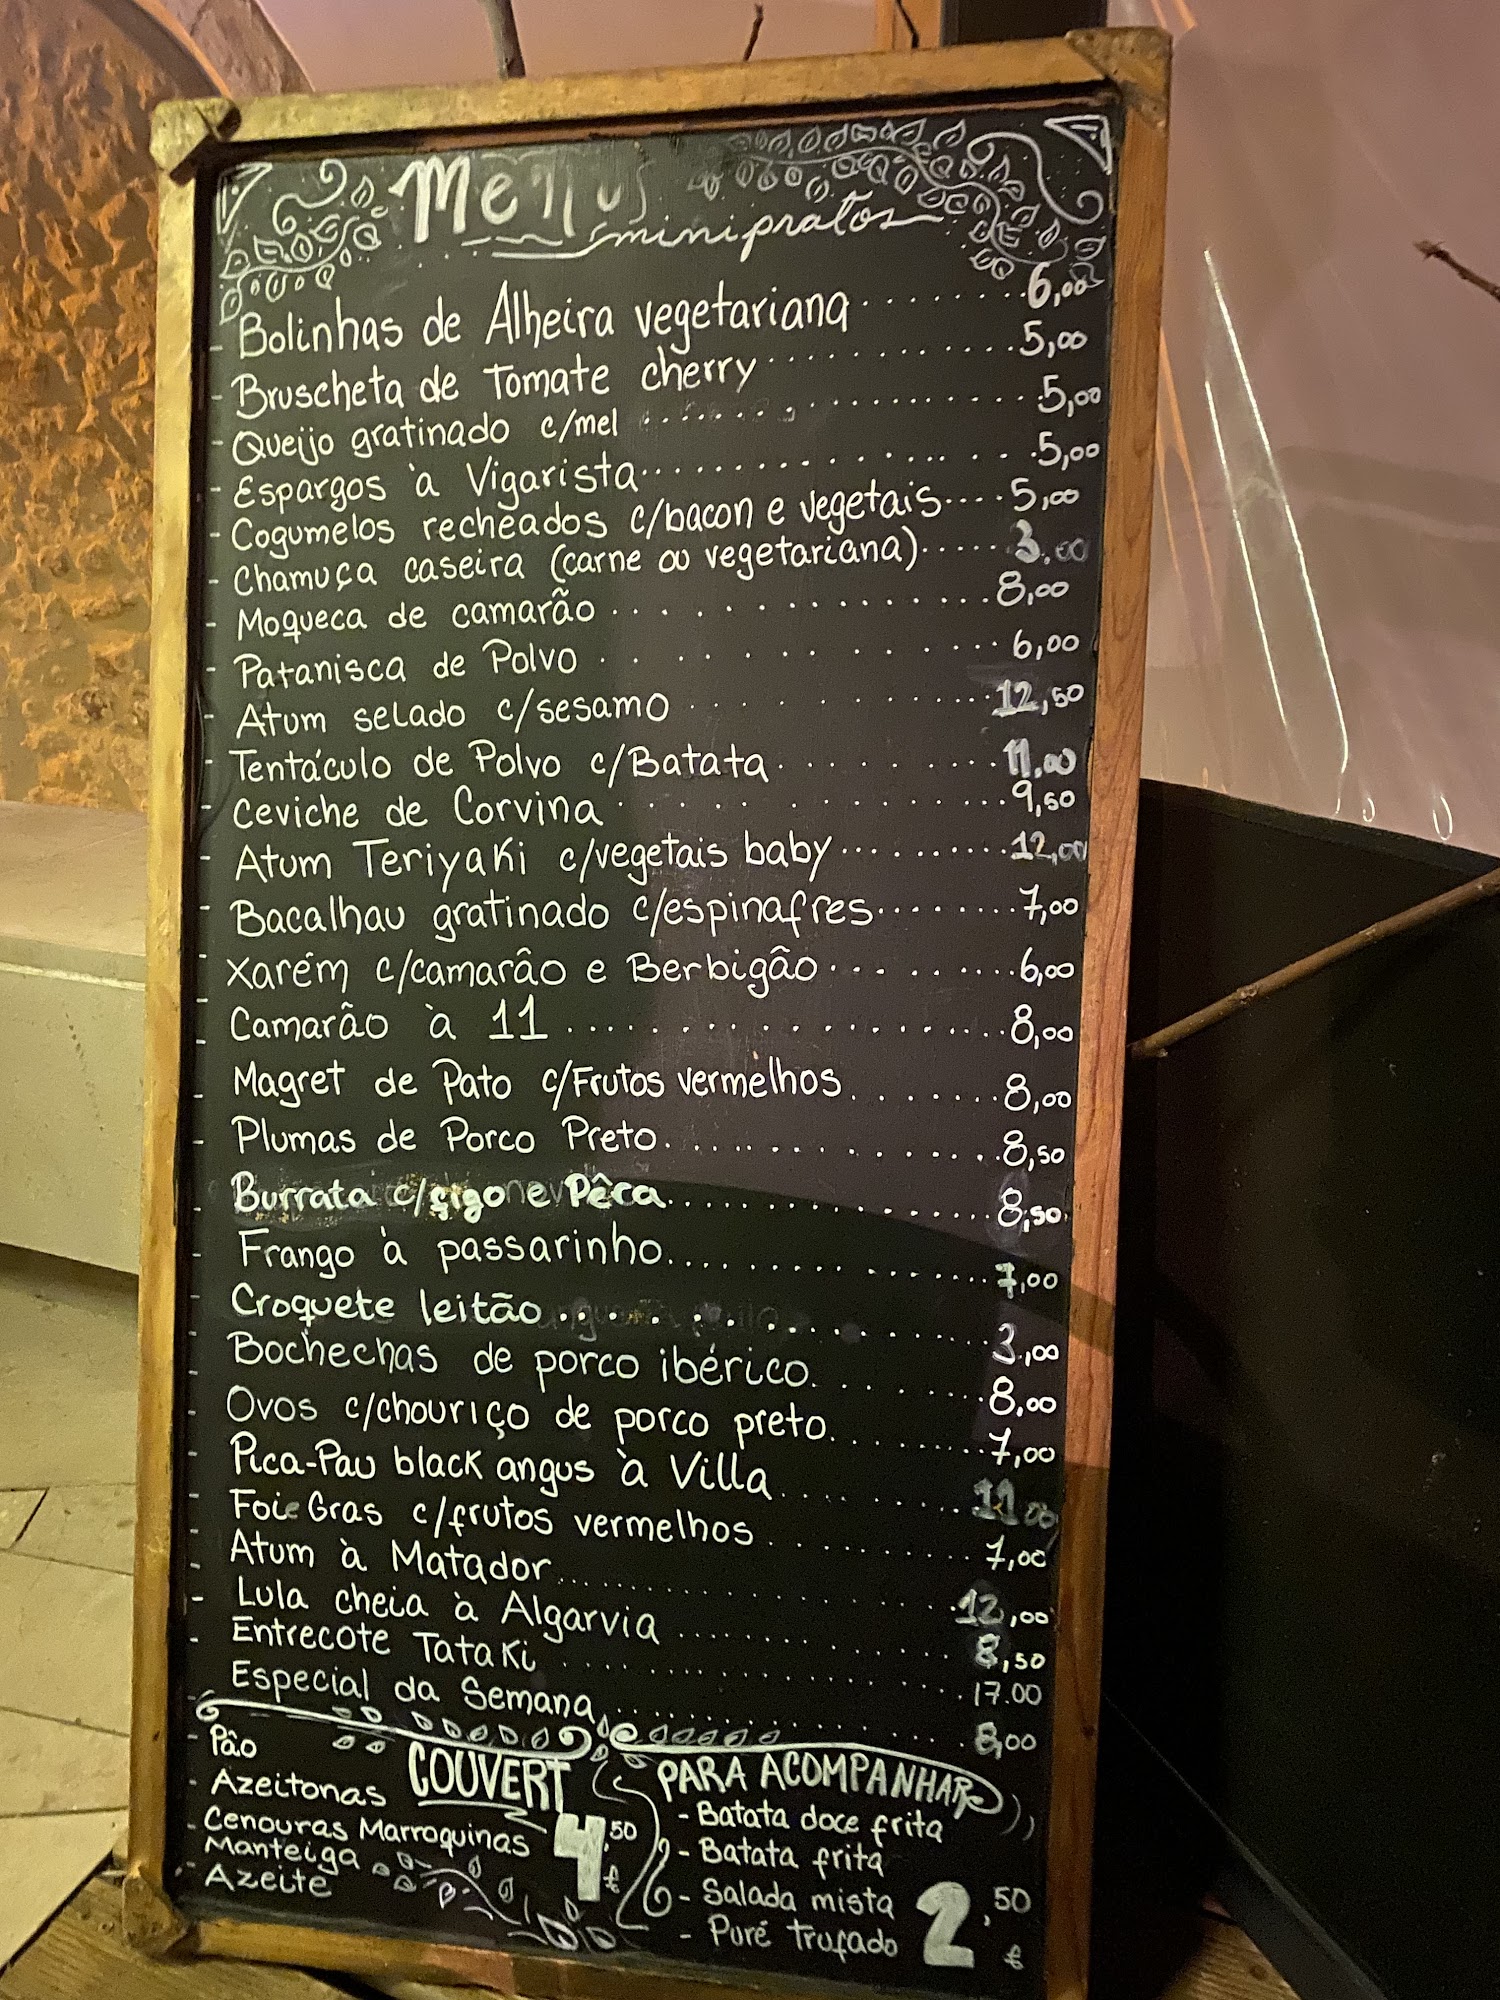 Menus
minipratos
- Bolinhas de Alheira vegetariana ........ 6,00
- Bruscheta de Tomate cherry ............ 5,00
- Queijo gratinado c/mel ................. 5,00
- Espargos à Vigarista ................ 5,00
- Cogumelos recheados c/bacon e vegetais .... 5,00
- Chamuça caseira (carne ou vegetariana) ..... 3.00
- Moqueca de camarão ............... 8,00
- Patanisca de Polvo .............. 6,00
- Atum selado c/sesamo ............ 12,50
- Tentáculo de Polvo c/Batata .......... 11.00
- Ceviche de Corvina .............. 9,50
- Atum Teriyaki c/vegetais baby .......... 12,00
- Bacalhau gratinado c/espinafres ........ 7,00
- Xarém c/camarão e Berbigão ......... 6,00
- Camarão à 11 .................... 8,00
- Magret de Pato c/Frutos vermelhos ........ 8,00
- Plumas de Porco Preto ............... 8,50
- Burrata c/figo e Pêra ................ 8,50
- Frango à passarinho ................ 7,00
- Croquete leitão ................. 3,00
- Bochechas de porco ibérico ........ 8,00
- Ovos c/chouriço de porco preto ......... 7,00
- Pica-Pau black angus à Villa ........ 11 00
- Foie Gras c/frutos vermelhos .......... 7,00
- Atum à Matador .................. 12,00
- Lula cheia à Algarvia .............. 8,50
- Entrecote Tataki ................ 17.00
- Especial da Semana ................ 8,00
COUVERT
- Pão
- Azeitonas
- Cenouras Marroquinas
- Manteiga
- Azeite
4,50 €
PARA ACOMPANHAR
- Batata doce frita
- Batata frita
- Salada mista
- Puré trufado
2,50 €